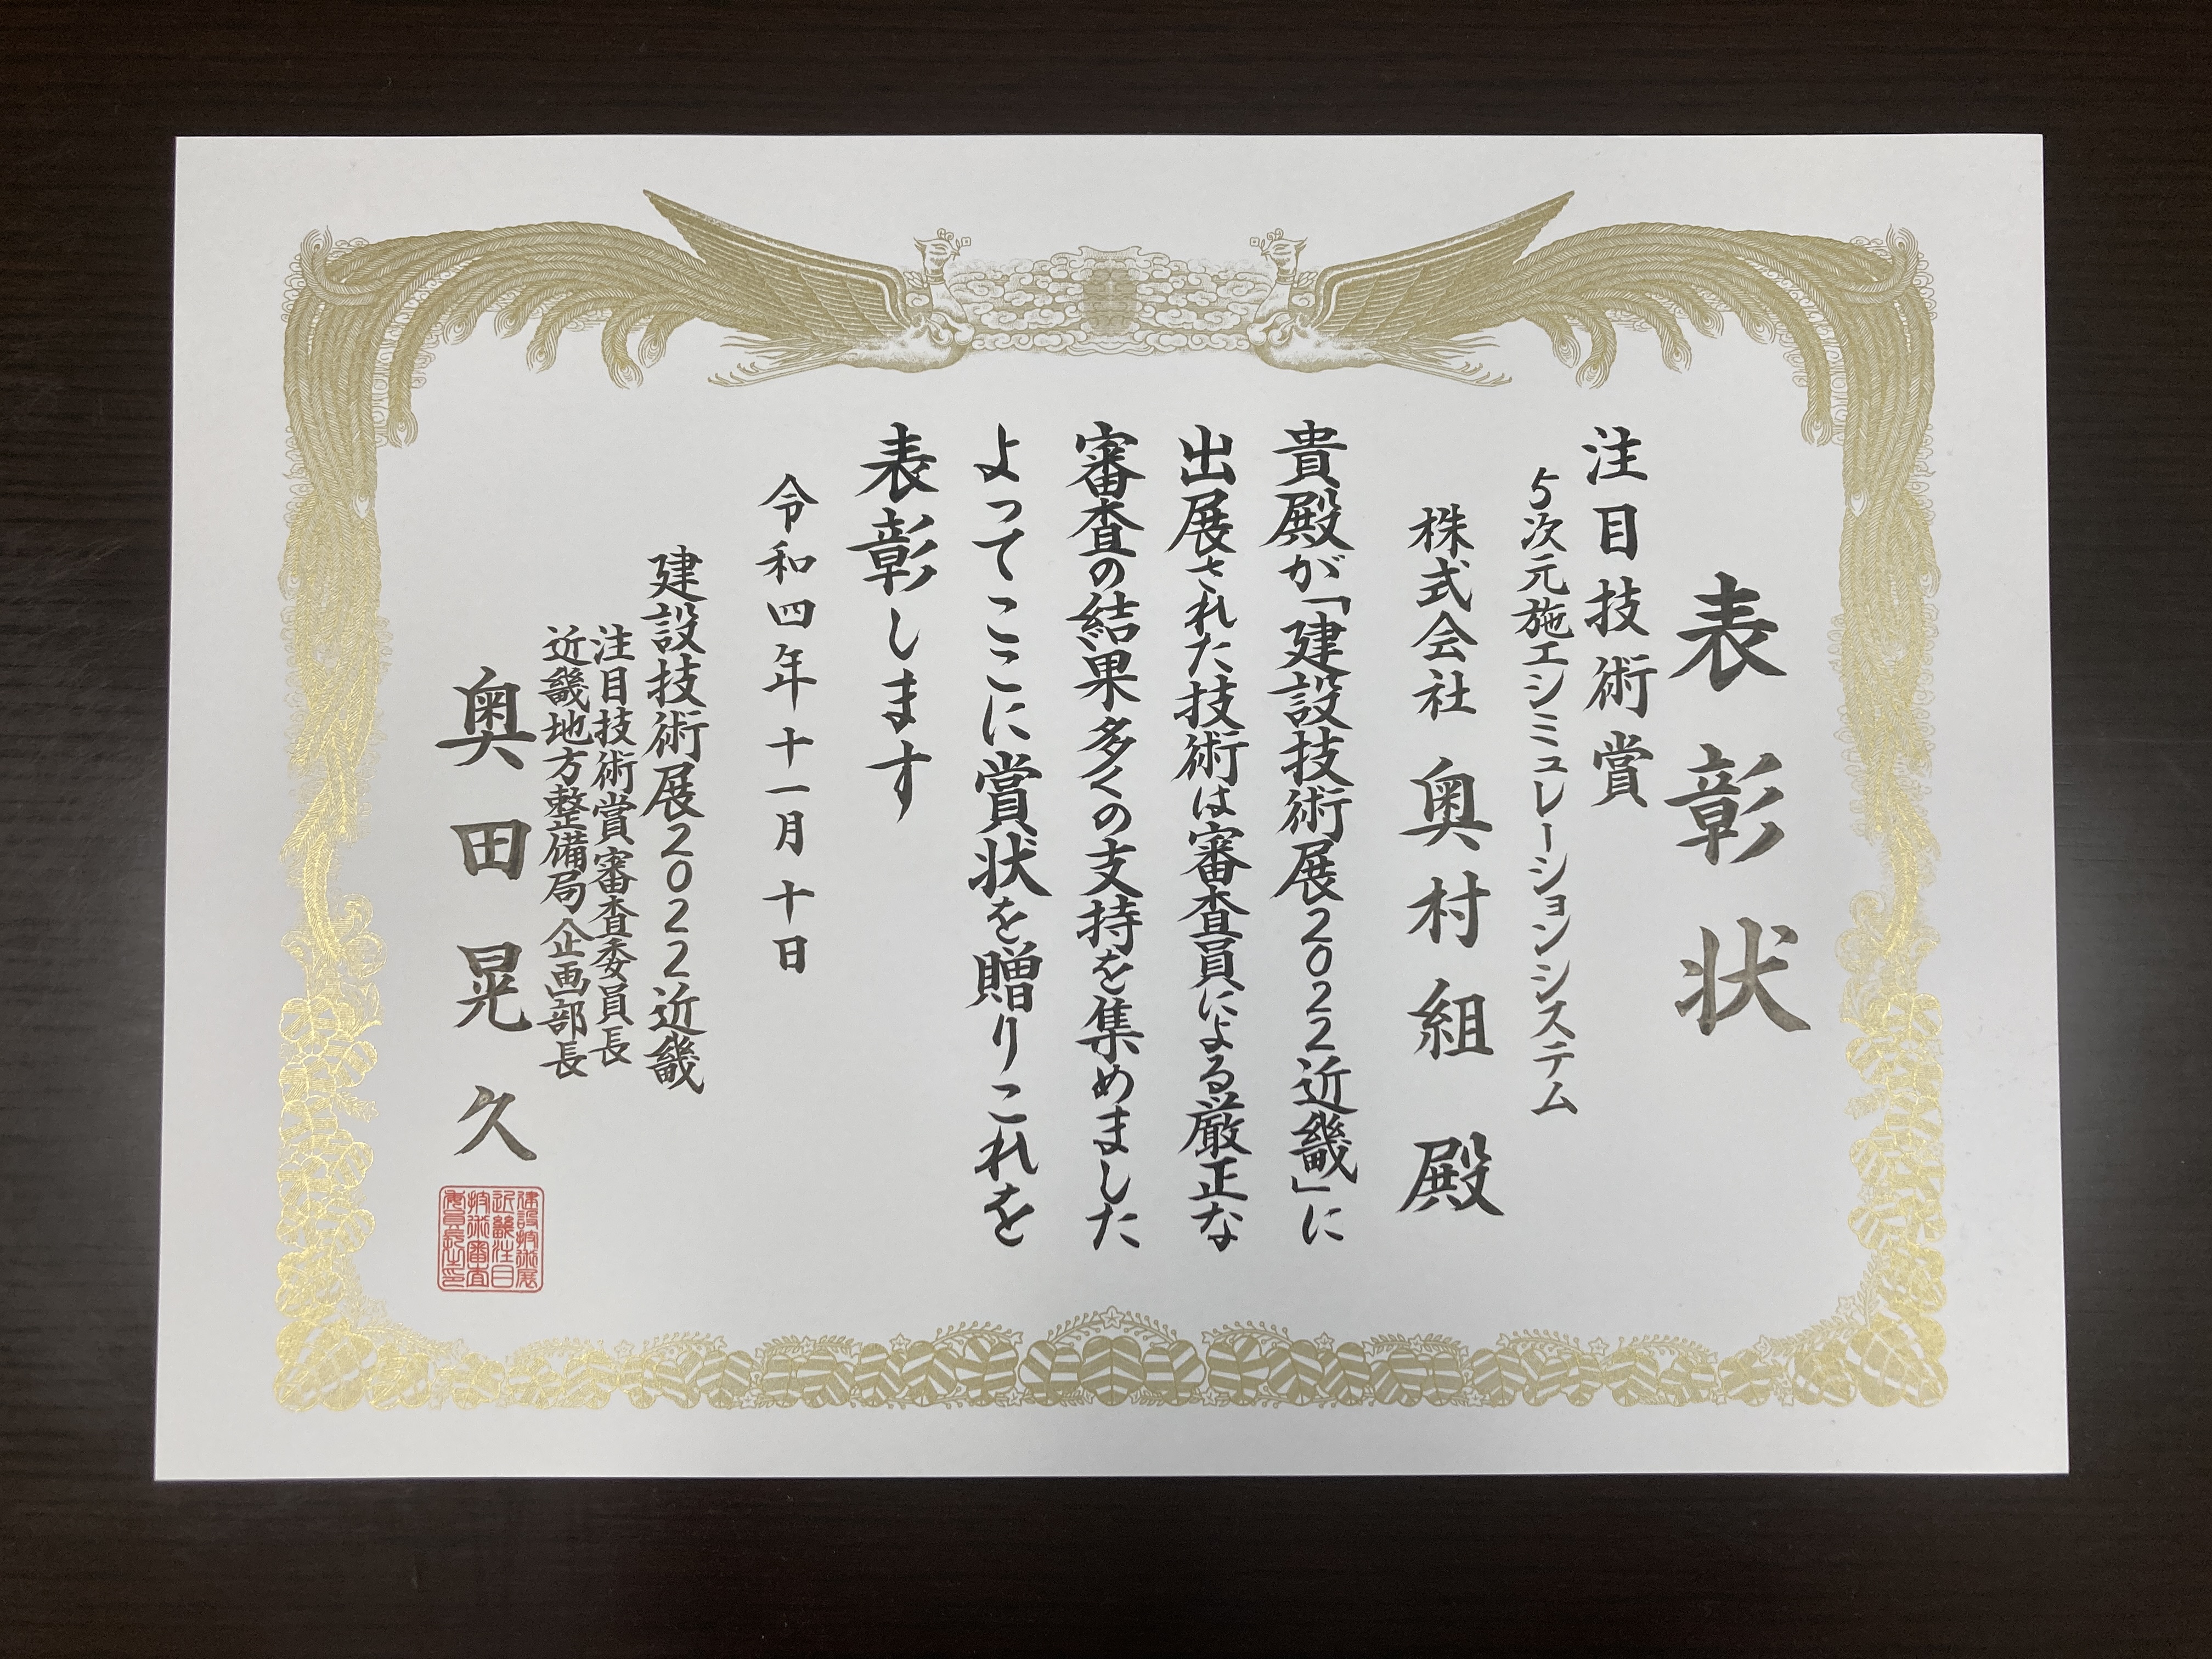 表彰状
注目技術賞
5次元施工シミュレーションシステム
株式会社 奥村組 殿
貴殿が「建設技術展2022近畿」に
出展された技術は審査員による厳正な
審査の結果多くの支持を集めました
よってここに賞状を贈りこれを
表彰します
令和四年十一月十日
建設技術展2022近畿
注目技術賞審査委員長
近畿地方整備局企画部長
奥田晃久
建設技術展
近畿注目
技術審査
委員長之印